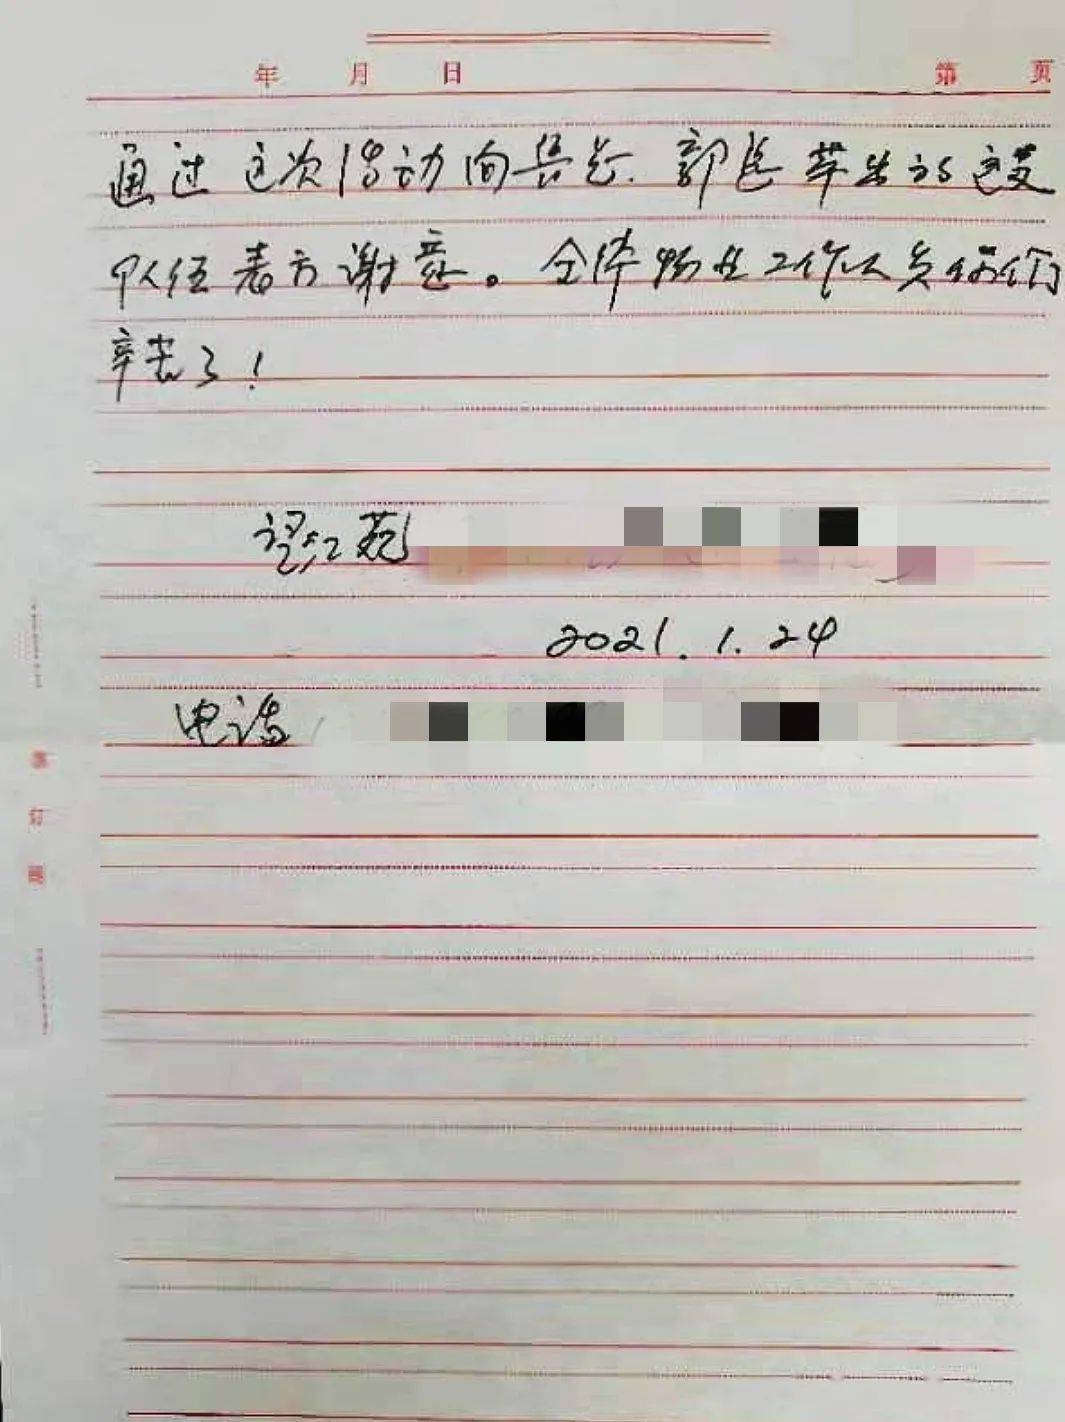 年 月 日 第 页
通过这次活动向吴总、郭总带出的这支
队伍表示谢意。全体物业工作人员你们
辛苦了！
望江苑
2021.1.24
电话
装
订
线